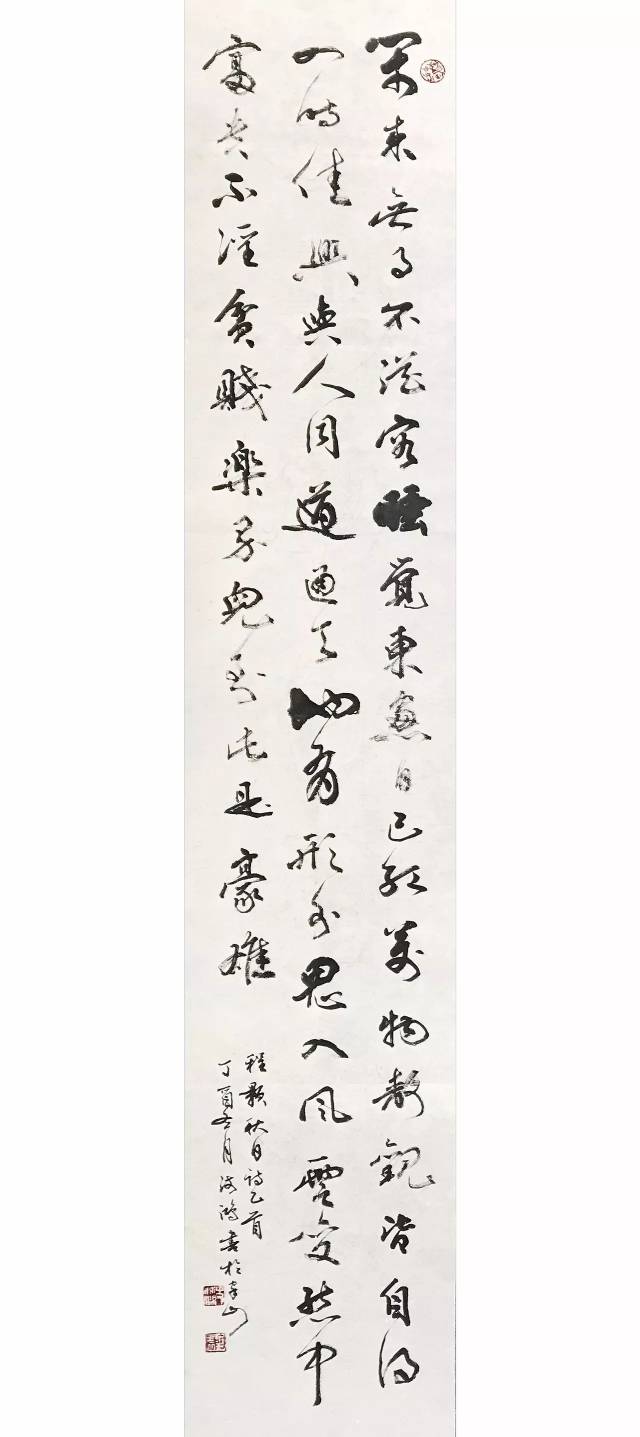 閑來無事不從容睡覺東窻日已紅萬物靜觀皆自得
四時佳興與人同道通天地有形外思入風雲變態中
富貴不淫貧賤樂男兒到此是豪雄
程顥秋日詩乙首
丁酉冬月鴻書於山